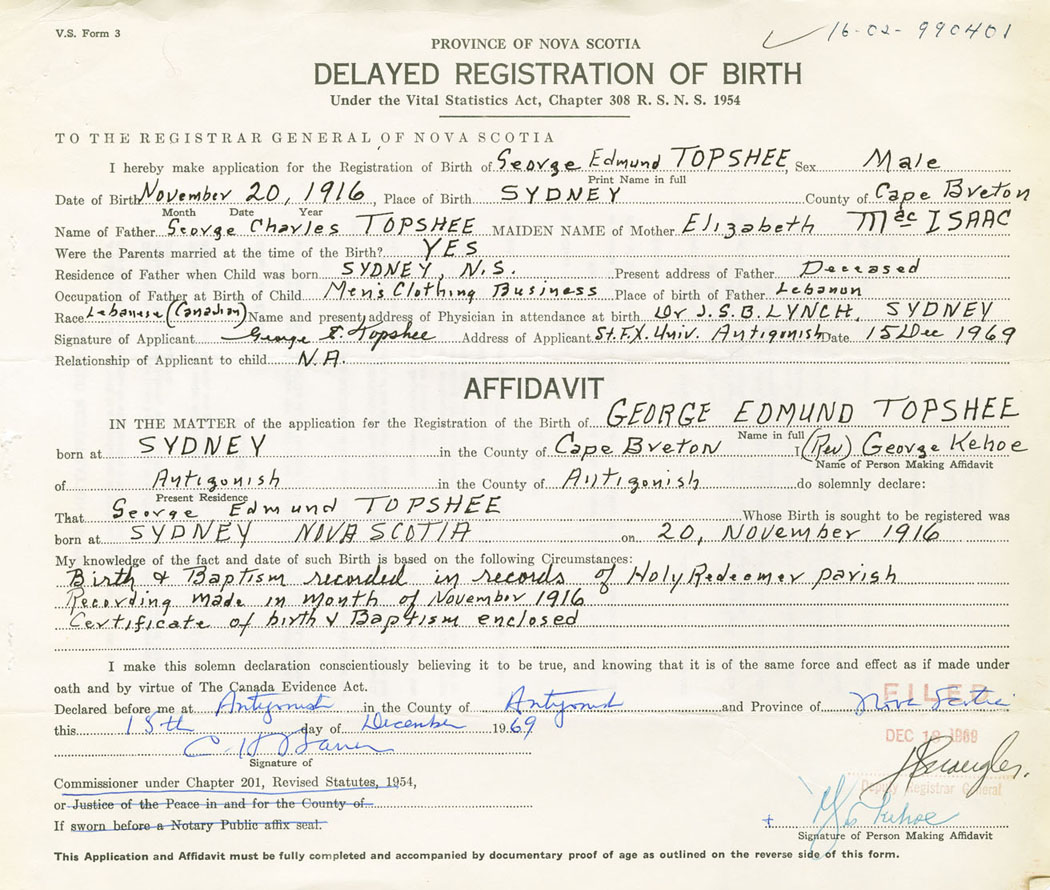 V.S. Form 3
16-02-990401
PROVINCE OF NOVA SCOTIA
DELAYED REGISTRATION OF BIRTH
Under the Vital Statistics Act, Chapter 308 R. S. N. S. 1954
TO THE REGISTRAR GENERAL OF NOVA SCOTIA
I hereby make application for the Registration of Birth of George Edmund TOPSHEE, Sex Male
Print Name in full
Date of Birth November 20, 1916, Place of Birth SYDNEY County of Cape Breton
Month Date Year
Name of Father George Charles TOPSHEE MAIDEN NAME of Mother Elizabeth MacISAAC
Were the Parents married at the time of the Birth? YES
Residence of Father when Child was born SYDNEY, N.S. Present address of Father Deceased
Occupation of Father at Birth of Child Men's Clothing Business Place of birth of Father Lebanon
Race Lebanese (Canadian) Name and present address of Physician in attendance at birth Dr J.S.B. LYNCH, SYDNEY
Signature of Applicant George E. Topshee Address of Applicant St.F.X. Univ. Antigonish Date 15 Dec 1969
Relationship of Applicant to child N.A.
AFFIDAVIT
IN THE MATTER of the application for the Registration of the Birth of GEORGE EDMUND TOPSHEE
Name in full
born at SYDNEY in the County of Cape Breton I (Rev) George Kehoe
Name of Person Making Affidavit
of Antigonish in the County of Antigonish do solemnly declare:
Present Residence
That George Edmund TOPSHEE Whose Birth is sought to be registered was
born at SYDNEY NOVA SCOTIA on 20, November 1916
My knowledge of the fact and date of such Birth is based on the following Circumstances:
Birth & Baptism recorded in records of Holy Redeemer parish
Recording made in month of November 1916
Certificate of birth & Baptism enclosed
I make this solemn declaration conscientiously believing it to be true, and knowing that it is of the same force and effect as if made under
oath and by virtue of The Canada Evidence Act.
Declared before me at Antigonish in the County of Antigonish and Province of Nova Scotia
FILED
this 15th day of December 1969
DEC 1969
Signature of
Commissioner under Chapter 201, Revised Statutes, 1954,
Deputy Registrar General
or Justice of the Peace in and for the County of
If sworn before a Notary Public affix seal.
Kehoe
Signature of Person Making Affidavit
This Application and Affidavit must be fully completed and accompanied by documentary proof of age as outlined on the reverse side of this form.